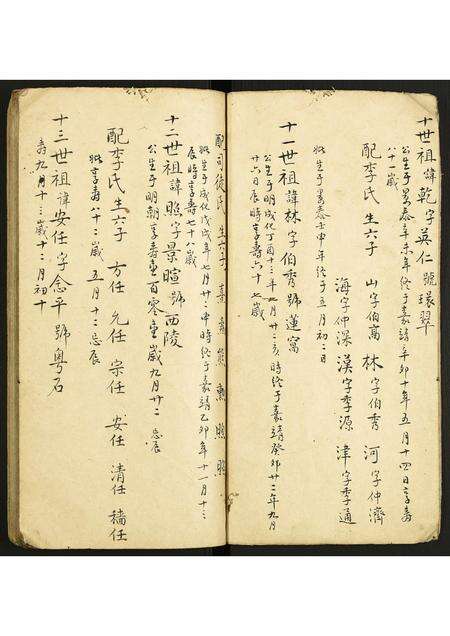 十世祖諱乾字英仁號環翠
公生于景泰辛未年終于嘉靖辛卯十年五月十四日享壽
八十歲
配李氏生六子 山字伯高 林字伯秀 河字仲濟
海字仲深 漢字季源 津字季通
妣生于景泰壬申年終于五月初二日
十一世祖諱林字伯秀號蓮窩
公生于明成化丁酉十三年九月廿二亥時終于嘉靖癸卯廿二年九月
廿六日辰時享壽六十七歲
配司徒氏生六子 熹 熊 勳 照
妣生于成化戊戌年七月廿二申時終于嘉靖乙卯年十一月十二
辰時享壽七十八歲
十二世祖諱照字景暄號西陵
公生于明朝享壽壹百零壹歲九月廿二忌辰
配李氏生六子 方任 允任 宗任 安任 清任 穡任
妣享壽八十二歲五月十二忌辰
十三世祖諱安任字念平號粵石
壽九月十三歲十二月初十